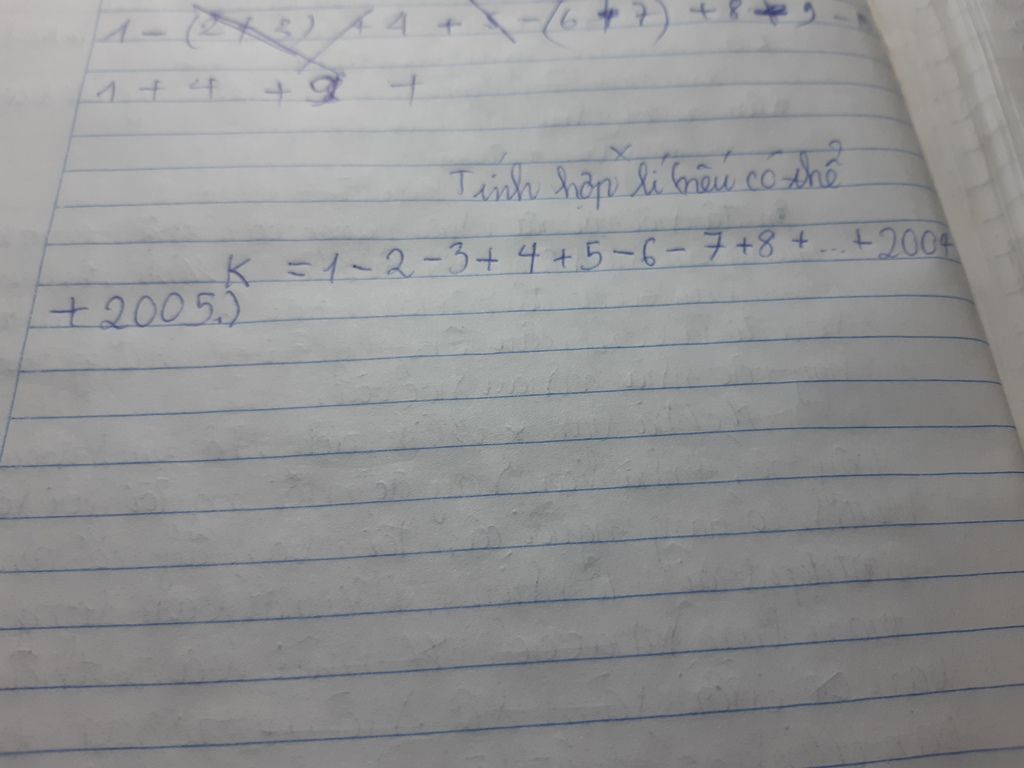 1 - (2 + 3) + 4 + 5 - (6 + 7) + 8 + 9 -
1 + 4 + 9 +
Tính hợp lí (nếu có thể
K = 1 - 2 - 3 + 4 + 5 - 6 - 7 + 8 + ... + 2004
+ 2005.)